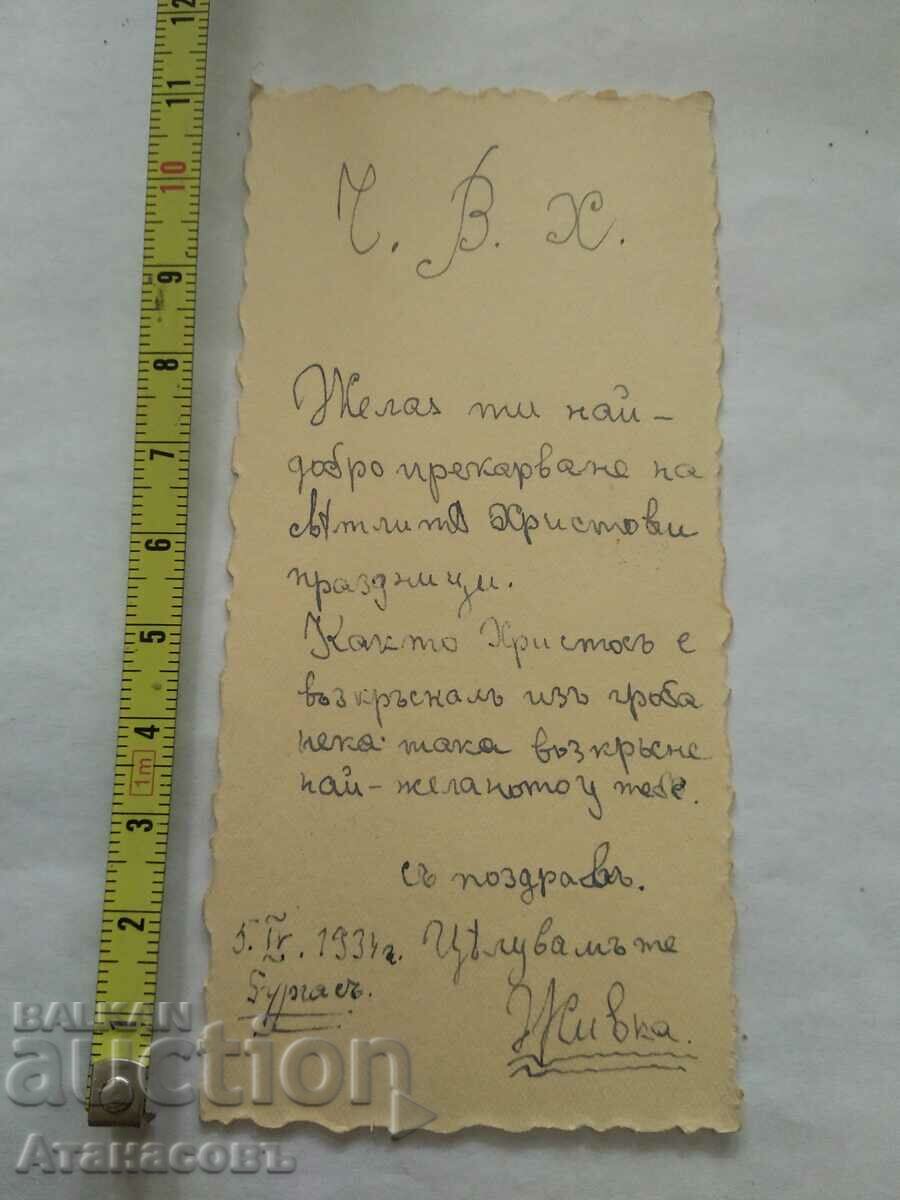 Ч. В. Х.
Желая ти най-
добро прекарване на
свѣтлитѣ Христови
празднници.
Както Христосъ е
възкръсналъ изъ гроба
нека така възкръсне
най-желаното у тебе.
съ поздравъ.
5. IV. 1934 г. Цѣлувамъ те
Бургасъ.
Живка.
12
11
10
9
8
7
6
5
4
1m
3
2
1
BALKAN
auction
Атанасовъ